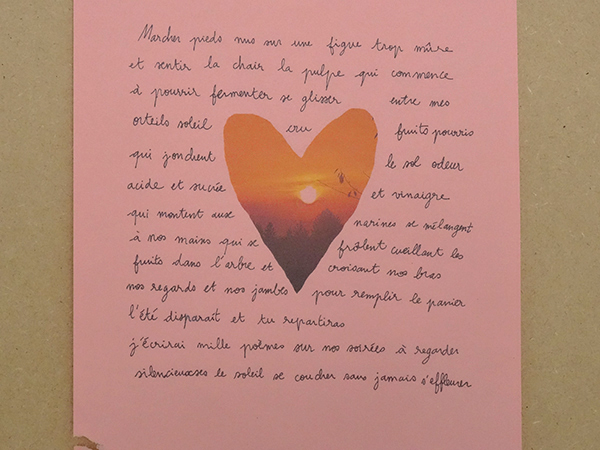 Marcher pieds nus sur une figue trop mûre
et sentir la chair la pulpe qui commence
à pourrir fermenter se glisser entre mes
orteils soleil cru fruits pourris
qui jondrent le sol odeur
acide et sucrée et vinaigre
qui montent aux narines se mélangent
à nos mains qui se frôlent cueillant les
fruits dans l'arbre et croisant nos bras
nos regards et nos jambes pour remplir le panier
l'été disparaît et tu repartiras
j'écrirai mille poèmes sur nos soirées à regarder
silencieux·ses le soleil se coucher sans jamais s'effleurer